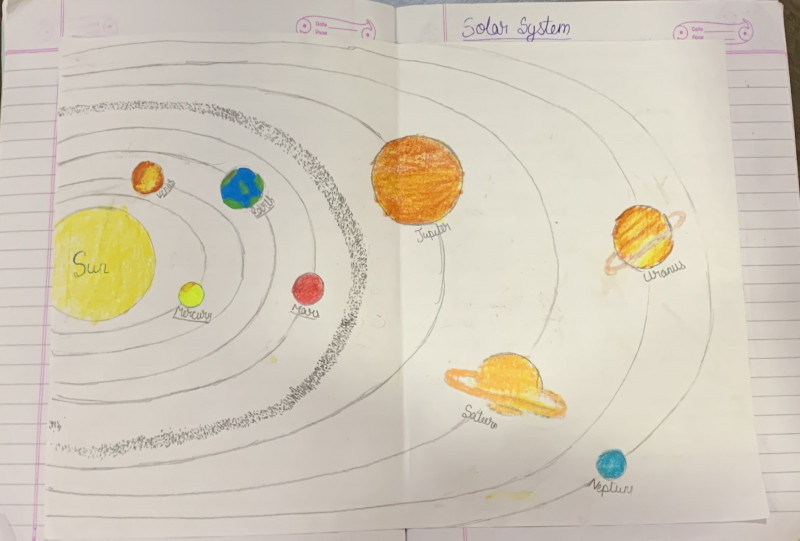 Date
Page
Solar System
Date
Page
Venus
Earth
Jupiter
Sun
Uranus
Mercury
Mars
Saturn
Neptune